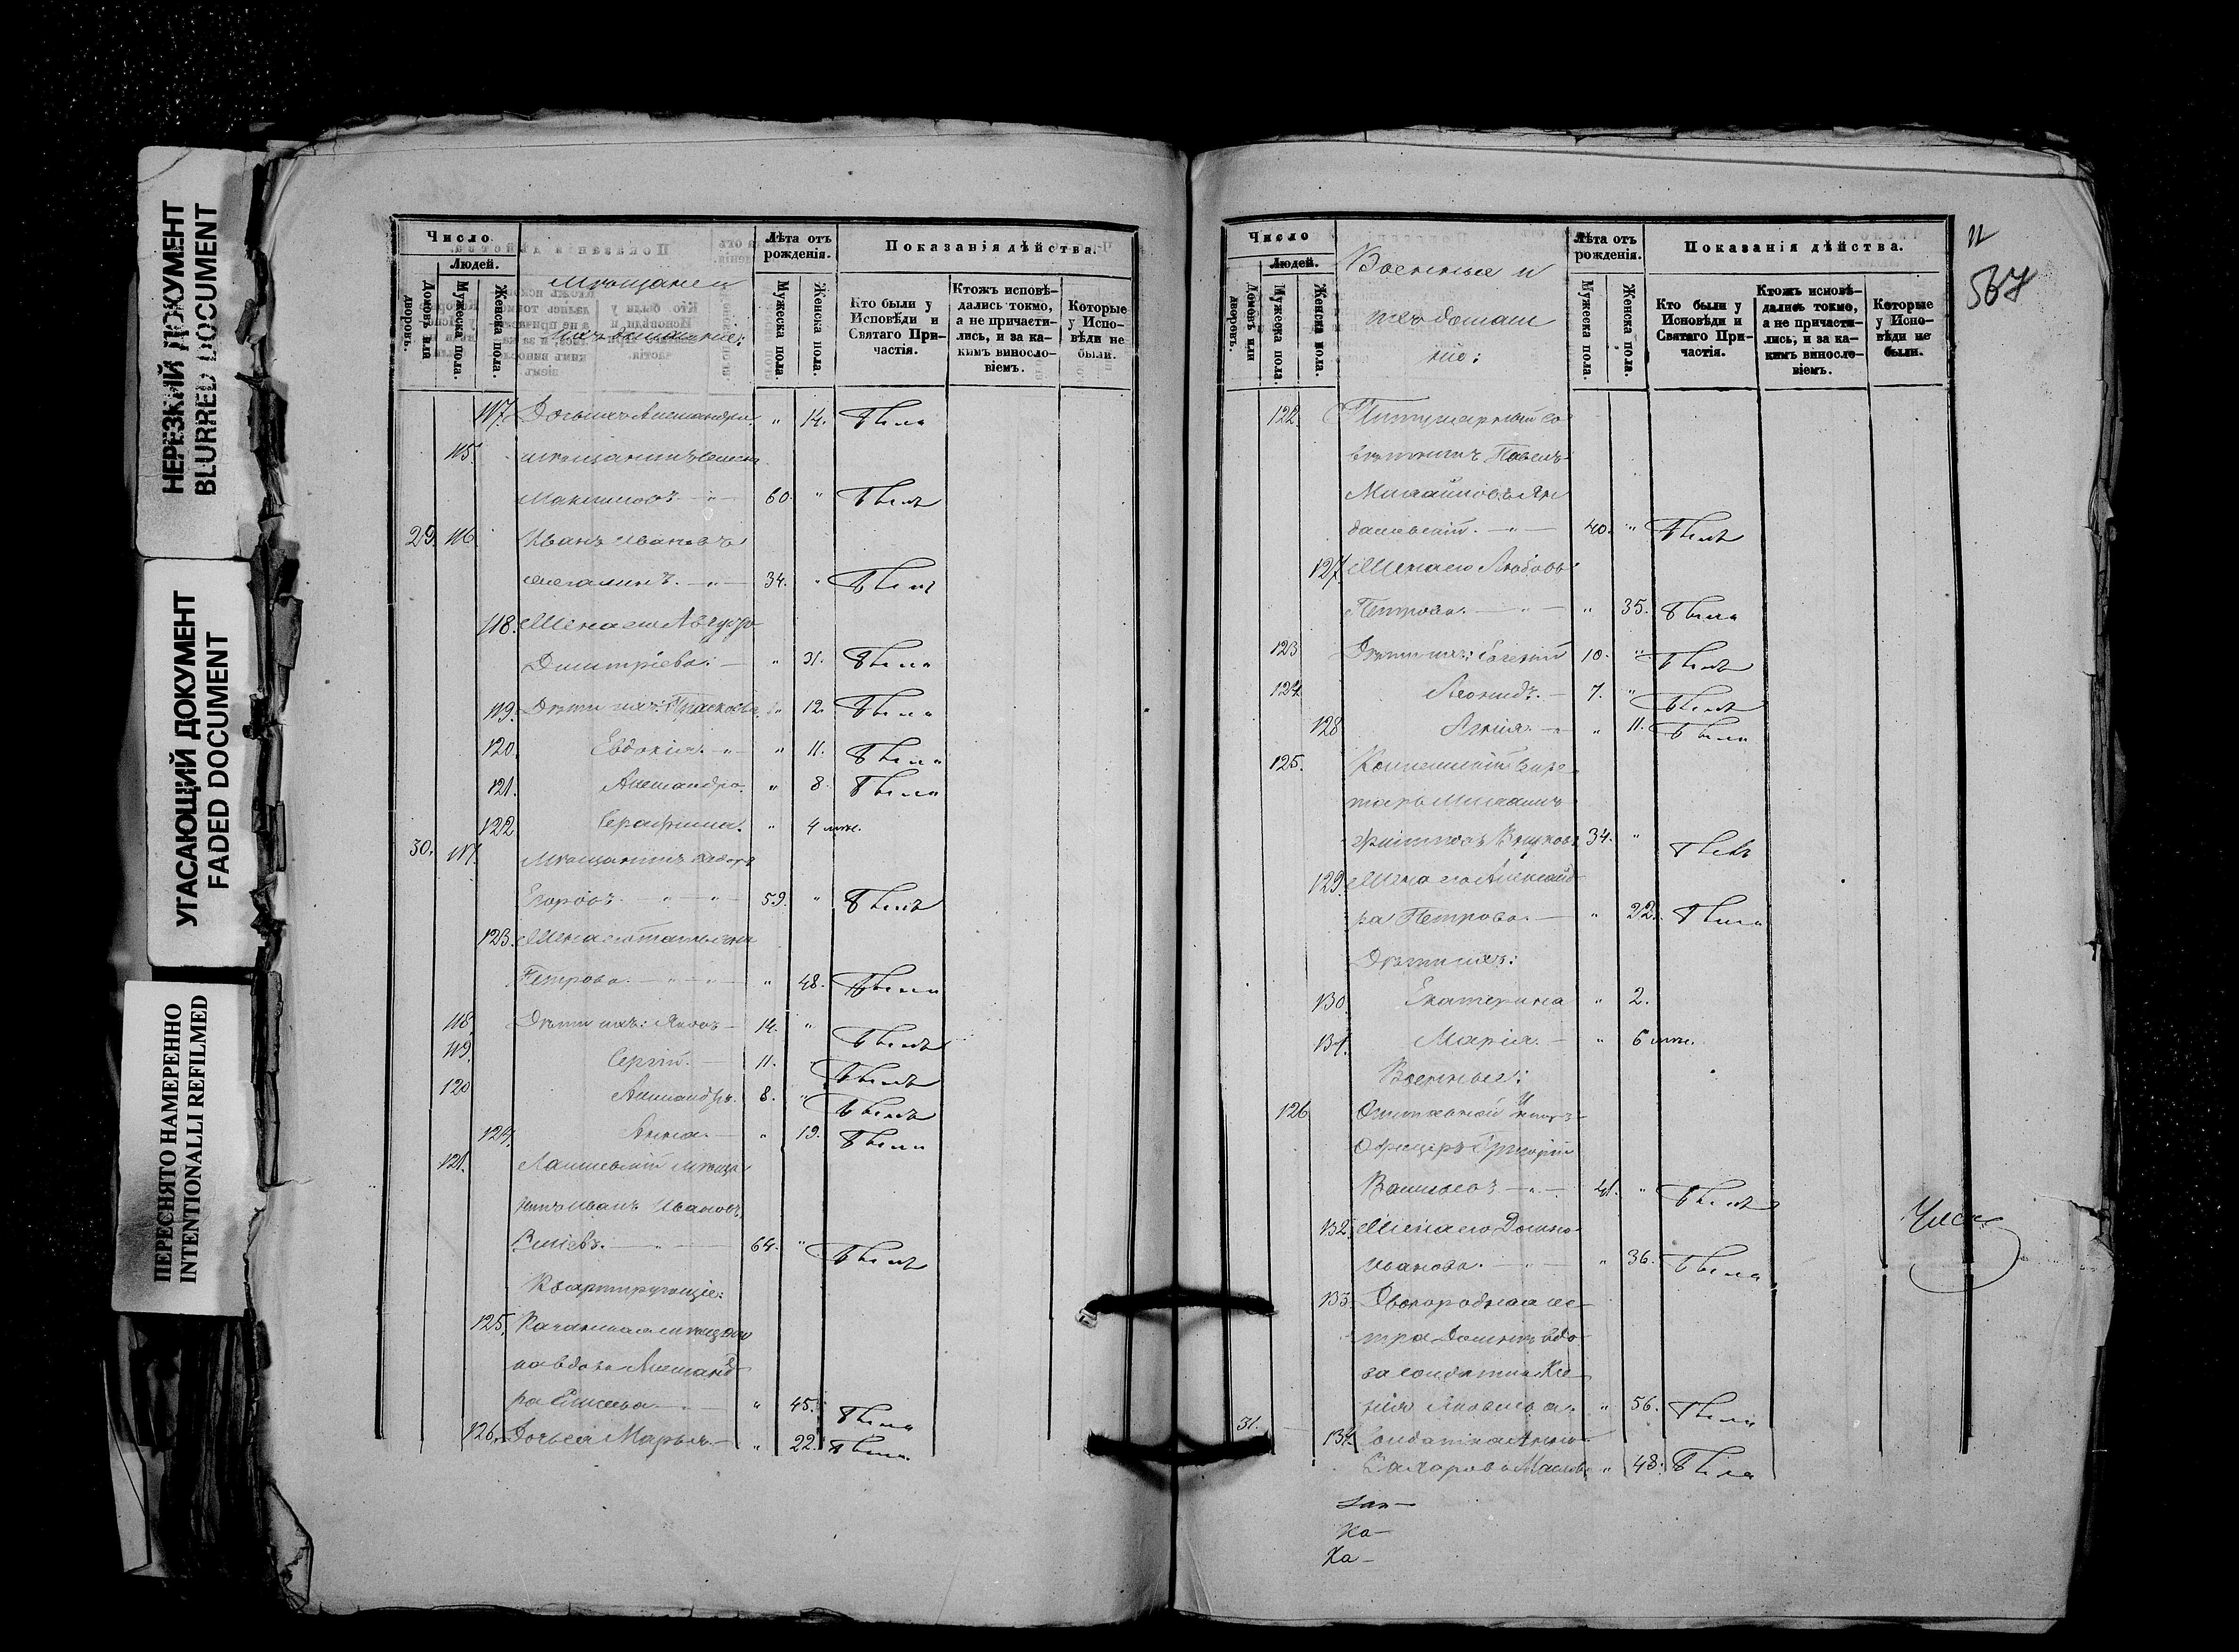 НЕРЕЗКИЙ ДОКУМЕНТ
BLURRED DOCUMENT
УГАСАЮЩИЙ ДОКУМЕНТ
FADED DOCUMENT
ПЕРЕСНЯТО НАМЕРЕННО
INTENTIONALLI REFILMED
Число
Людей.
Домовъ или дворовъ.
Мужеска пола.
Женска пола.
Мѣщане и
ихъ домашніе:
Лѣта отъ рожденія.
Мужеска пола.
Женска пола.
Показанія дѣйства.
Кто были у Исповѣди и Святаго Причастія.
Ктожъ исповѣдались токмо, а не причастились, и за какимъ винословіемъ.
Которые у Исповѣди не были.
117. Дочь ихъ Александра " 14. Была
115. мѣщанинъ
Максимовъ — " — 60. " Былъ
29. 116. Иванъ Ивановъ
— " — 34. " Былъ
118. Жена его
Димитріева. — " 31. Была
119. Дѣти ихъ: Прасковья " 12. Была
120. Евдокія. — " — " 11. Была
121. Александра. " 8. Была
122 Серафима. " 4 мѣс.
30. 117. Мѣщанинъ
Егоровъ. — " — " — 59. " Былъ
123. Жена его Татьяна
Петрова. — " — " — " 48. Была
118. Дѣти ихъ: Яковъ — 14. " Былъ
119. Сергій. — 11. " Былъ
120 Александръ. 8. " Былъ
124. Анна. — " 19. Была
121. мѣща
нинъ Иванъ Ивановъ
— " — 64. " Былъ
Квартирующіе:
125. Казанская мѣщан
ка вдова Александ
ра — " 45. Была
126. Дочь ея Марья. — " 22. Была
Число
Людей.
Домовъ или дворовъ.
Мужеска пола.
Женска пола.
Военные и
ихъ домаш
ніе:
Лѣта отъ рожденія.
Мужеска пола.
Женска пола.
Показанія дѣйства.
Кто были у Исповѣди и Святаго Причастія.
Ктожъ исповѣдались токмо, а не причастились, и за какимъ винословіемъ.
Которые у Исповѣди не были.
567
122. Титулярный со
вѣтникъ Павелъ
Михайловъ Ян
— " — 40. " Былъ
127. Жена его Любовь
Петрова. — " — " 35. Была
123 Дѣти ихъ: Евгеній 10. " Былъ
124 Леонидъ. — 7. " Былъ
128 — " — " 11. Была
125. Коллежскій Секре
тарь Михаилъ
34. " Былъ
129. Жена его Александ
ра Петрова. — " 22. Была
Дѣти ихъ:
130. Екатерина " 2.
131. Марія. — " 6 мѣс.
Военные:
126 Унтеръ
Офицеръ Григорій
Васильевъ — " — 41. " Былъ
132. Жена его Домна
Иванова. — " — " 36. Была
133. Двоюродная сес
тра Домны вдо
ва солдатка Ксе
нія Яковлева. " 56. Была
31. 134. Солдатка
Захарова " 48. Была
Ка—
Ка—